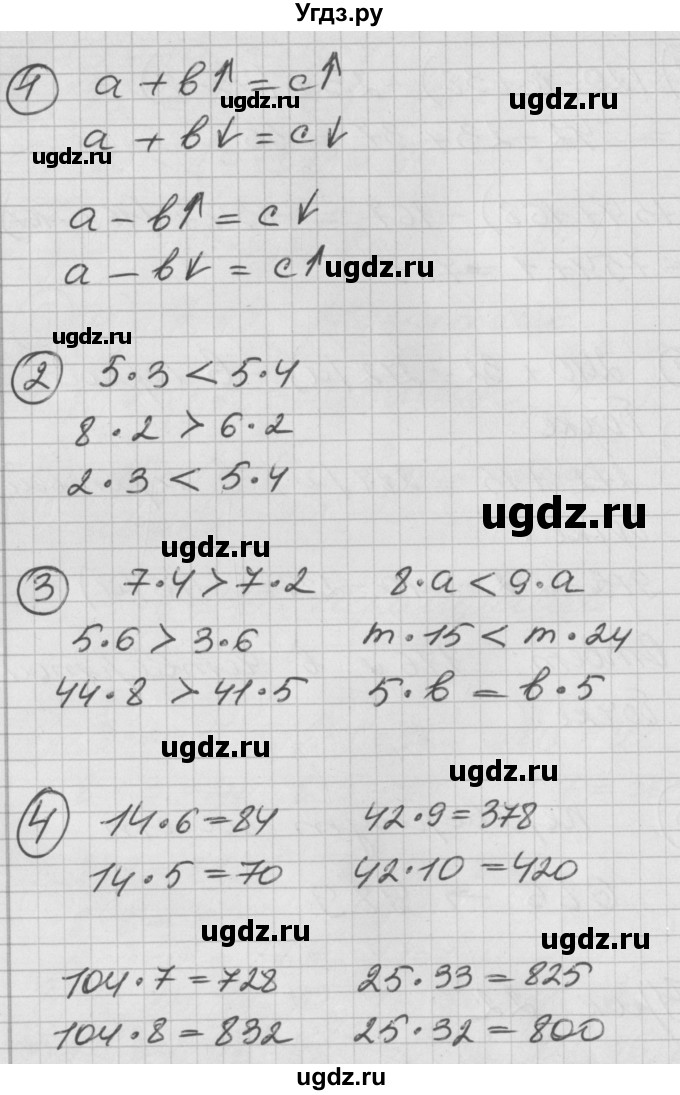 Угдз.ру
④ a + b↑ = c↑
ugdz.ru
ugdz.ru
a + b↓ = c↓
ugdz.ru
a − b↑ = c↓
a − b↓ = c↑ ugdz.ru
ugdz.ru
② 5·3 < 5·4
8·2 > 6·2
2·3 < 5·4
ugdz.ru
ugdz.ru
③ 7·4 > 7·2 8·a < 9·a
5·6 > 3·6 m·15 < m·24
44·8 > 41·5 5·b = b·5
ugdz.ru
ugdz.ru
④ 14·6 = 84 42·9 = 378
14·5 = 70 42·10 = 420
ugdz.ru
ugdz.ru
104·7 = 728 25·33 = 825
104·8 = 832 25·32 = 800
ugdz.ru